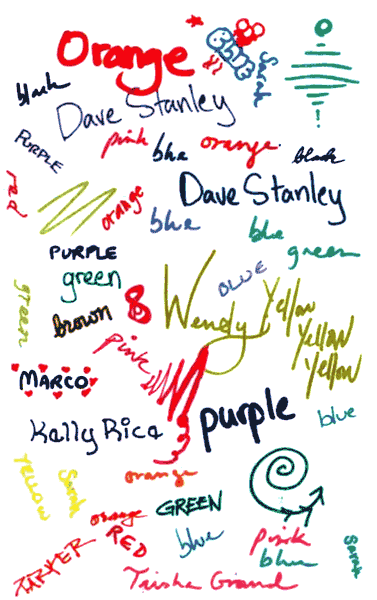 Orange
BLUE
Sarah
black
Dave Stanley
PURPLE
pink
blue
orange
black
red
orange
Dave Stanley
blue
blue
green
PURPLE
green
BLUE
green
brown
8
Wendy
Yellow
Yellow
Yellow
pink
MARCO
Kelly Rice
purple
blue
Yellow
Sarah
orange
orange
GREEN
RED
blue
pink
blue
Sarah
PARKER
Trisha Grand